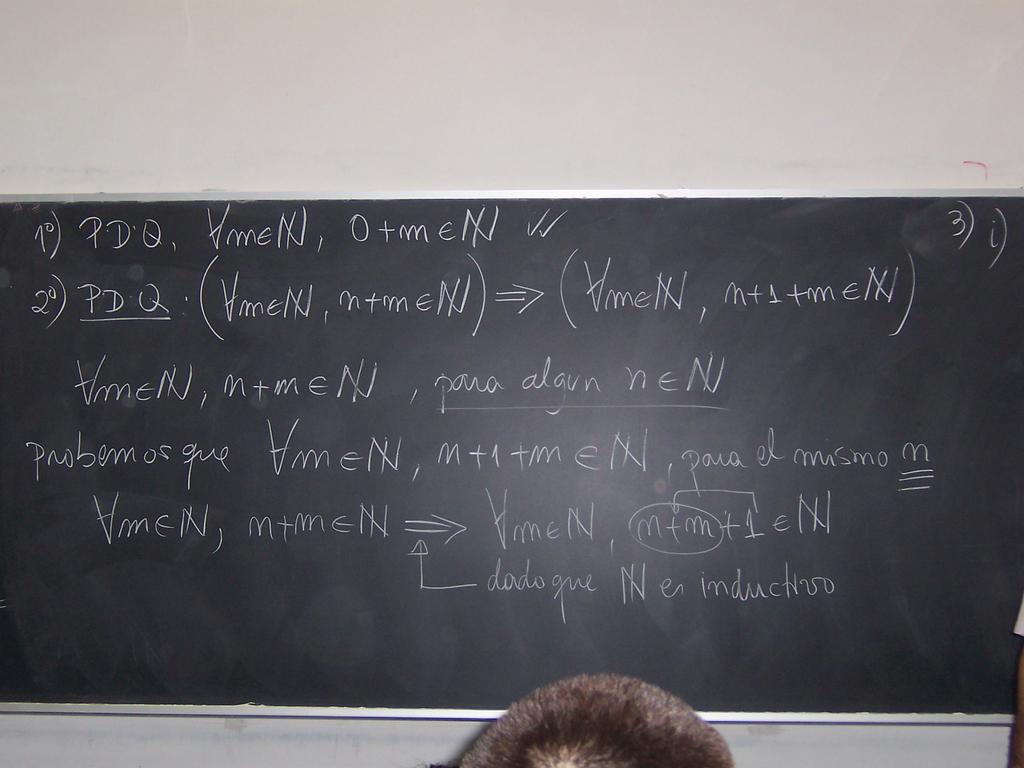 1º) P.D.Q. ∀m∈ℕ, 0+m∈ℕ ✓✓
3) i)
2º) PDQ: (∀m∈ℕ, n+m∈ℕ) ⇒ (∀m∈ℕ, n+1+m∈ℕ)
∀m∈ℕ, n+m∈ℕ, para algun n∈ℕ
probemos que ∀m∈ℕ, n+1+m∈ℕ, para el mismo n
∀m∈ℕ, n+m∈ℕ ⇒ ∀m∈ℕ, n+m+1∈ℕ
dado que ℕ es inductivo